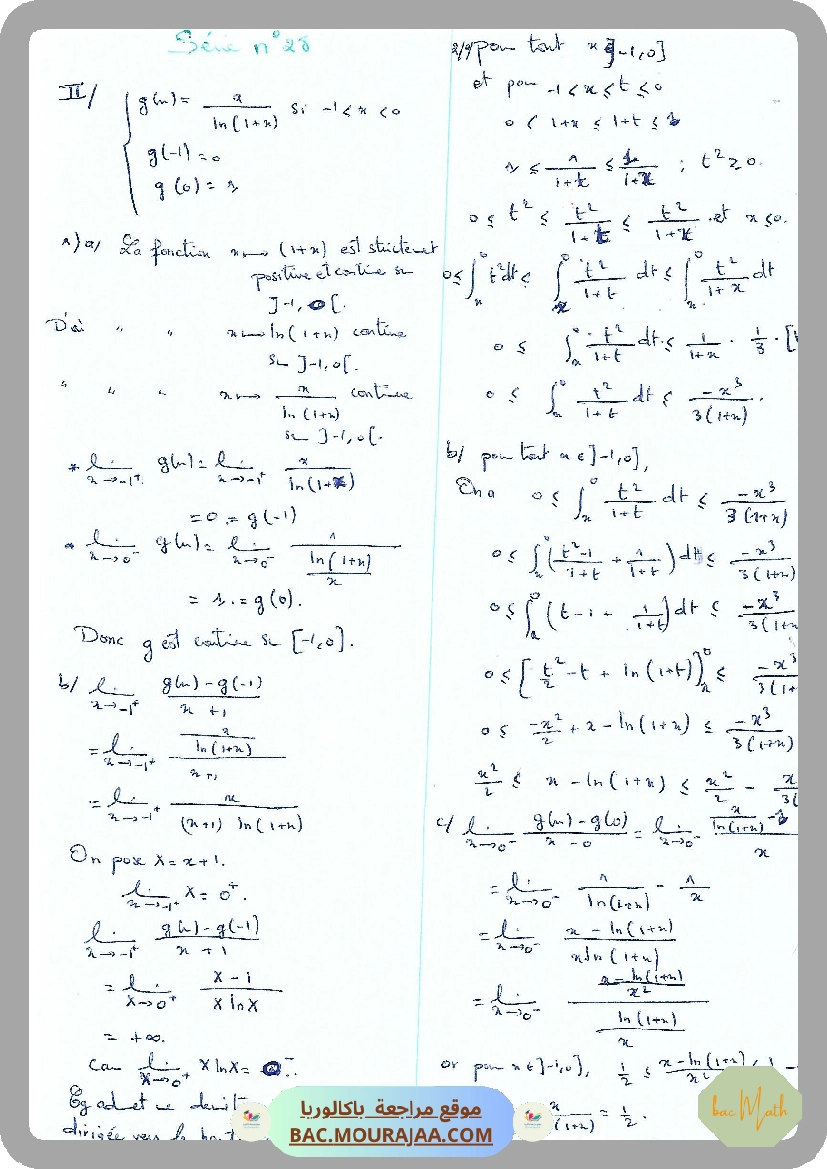 Série n°28
II/ { g(x) = x / ln(1+x) si -1 < x < 0
g(-1) = 0
g(0) = 1
1) a/ La fonction x ↦ (1+x) est strictement
positive et continue sur
]-1, 0[.
D'où " " x ↦ ln(1+x) continue
sur ]-1, 0[.
" " " x ↦ x / ln(1+x) continue
sur ]-1, 0[.
* lim x→-1⁺ g(x) = lim x→-1⁺ x / ln(1+x)
= 0 = g(-1)
* lim x→0⁻ g(x) = lim x→0⁻ 1 / (ln(1+x) / x)
= 1 = g(0).
Donc g est continue sur [-1, 0].
b/ lim x→-1⁺ (g(x) - g(-1)) / (x+1)
= lim x→-1⁺ (x / ln(1+x)) / (x+1)
= lim x→-1⁺ x / ((x+1) ln(1+x))
On pose X = x+1.
lim x→-1⁺ X = 0⁺
lim x→-1⁺ (g(x) - g(-1)) / (x+1)
= lim X→0⁺ (X-1) / (X ln X)
= +∞.
Car lim X→0⁺ X ln X = 0⁻.
Cg admet une demi t
dirigée vers le haut
2/ a/ pour tout x ∈ ]-1, 0]
et pour -1 < x ≤ t ≤ 0
0 < 1+x ≤ 1+t ≤ 1
1 ≤ 1/(1+t) ≤ 1/(1+x) ; t² ≥ 0
0 ≤ t² ≤ t²/(1+t) ≤ t²/(1+x) et x ≤ 0.
0 ≤ ∫ₓ⁰ t² dt ≤ ∫ₓ⁰ t²/(1+t) dt ≤ ∫ₓ⁰ t²/(1+x) dt
0 ≤ ∫ₓ⁰ t²/(1+t) dt ≤ 1/(1+x) · 1/3 · [
0 ≤ ∫ₓ⁰ t²/(1+t) dt ≤ -x³ / 3(1+x).
b/ pour tout x ∈ ]-1, 0],
On a 0 ≤ ∫ₓ⁰ t²/(1+t) dt ≤ -x³ / 3(1+x)
0 ≤ ∫ₓ⁰ ((t²-1)/(1+t) + 1/(1+t)) dt ≤ -x³ / 3(1+x)
0 ≤ ∫ₓ⁰ (t - 1 + 1/(1+t)) dt ≤ -x³ / 3(1+x
0 ≤ [t²/2 - t + ln(1+t)]ₓ⁰ ≤ -x³ / 3(1+
0 ≤ -x²/2 + x - ln(1+x) ≤ -x³ / 3(1+x)
x²/2 ≤ x - ln(1+x) ≤ x²/2 - x / 3(
c/ lim x→0⁻ (g(x) - g(0)) / (x - 0) = lim x→0⁻ (x / ln(1+x) - 1) / x
= lim x→0⁻ 1 / ln(1+x) - 1/x
= lim x→0⁻ (x - ln(1+x)) / (x ln(1+x))
= lim x→0⁻ ((x - ln(1+x)) / x²) / (ln(1+x) / x)
or pour x ∈ ]-1, 0[, 1/2 ≤ (x - ln(1+x)) / x² ≤ 1 -
x / (1+x) = 1/2.
موقع مراجعة باكالوريا
BAC.MOURAJAA.COM
bac Math